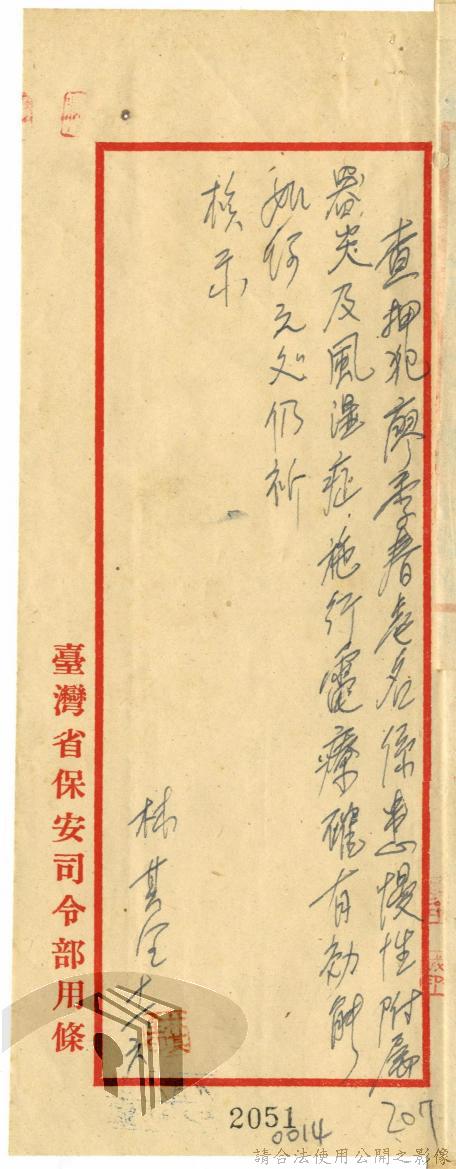 查押犯廖李春老名係患慢性附屬
器炎及風濕症施行電療確有効能
如何之処仍祈
核示
林其全
臺灣省保安司令部用條
2051
0014
207
請合法使用公開之影像